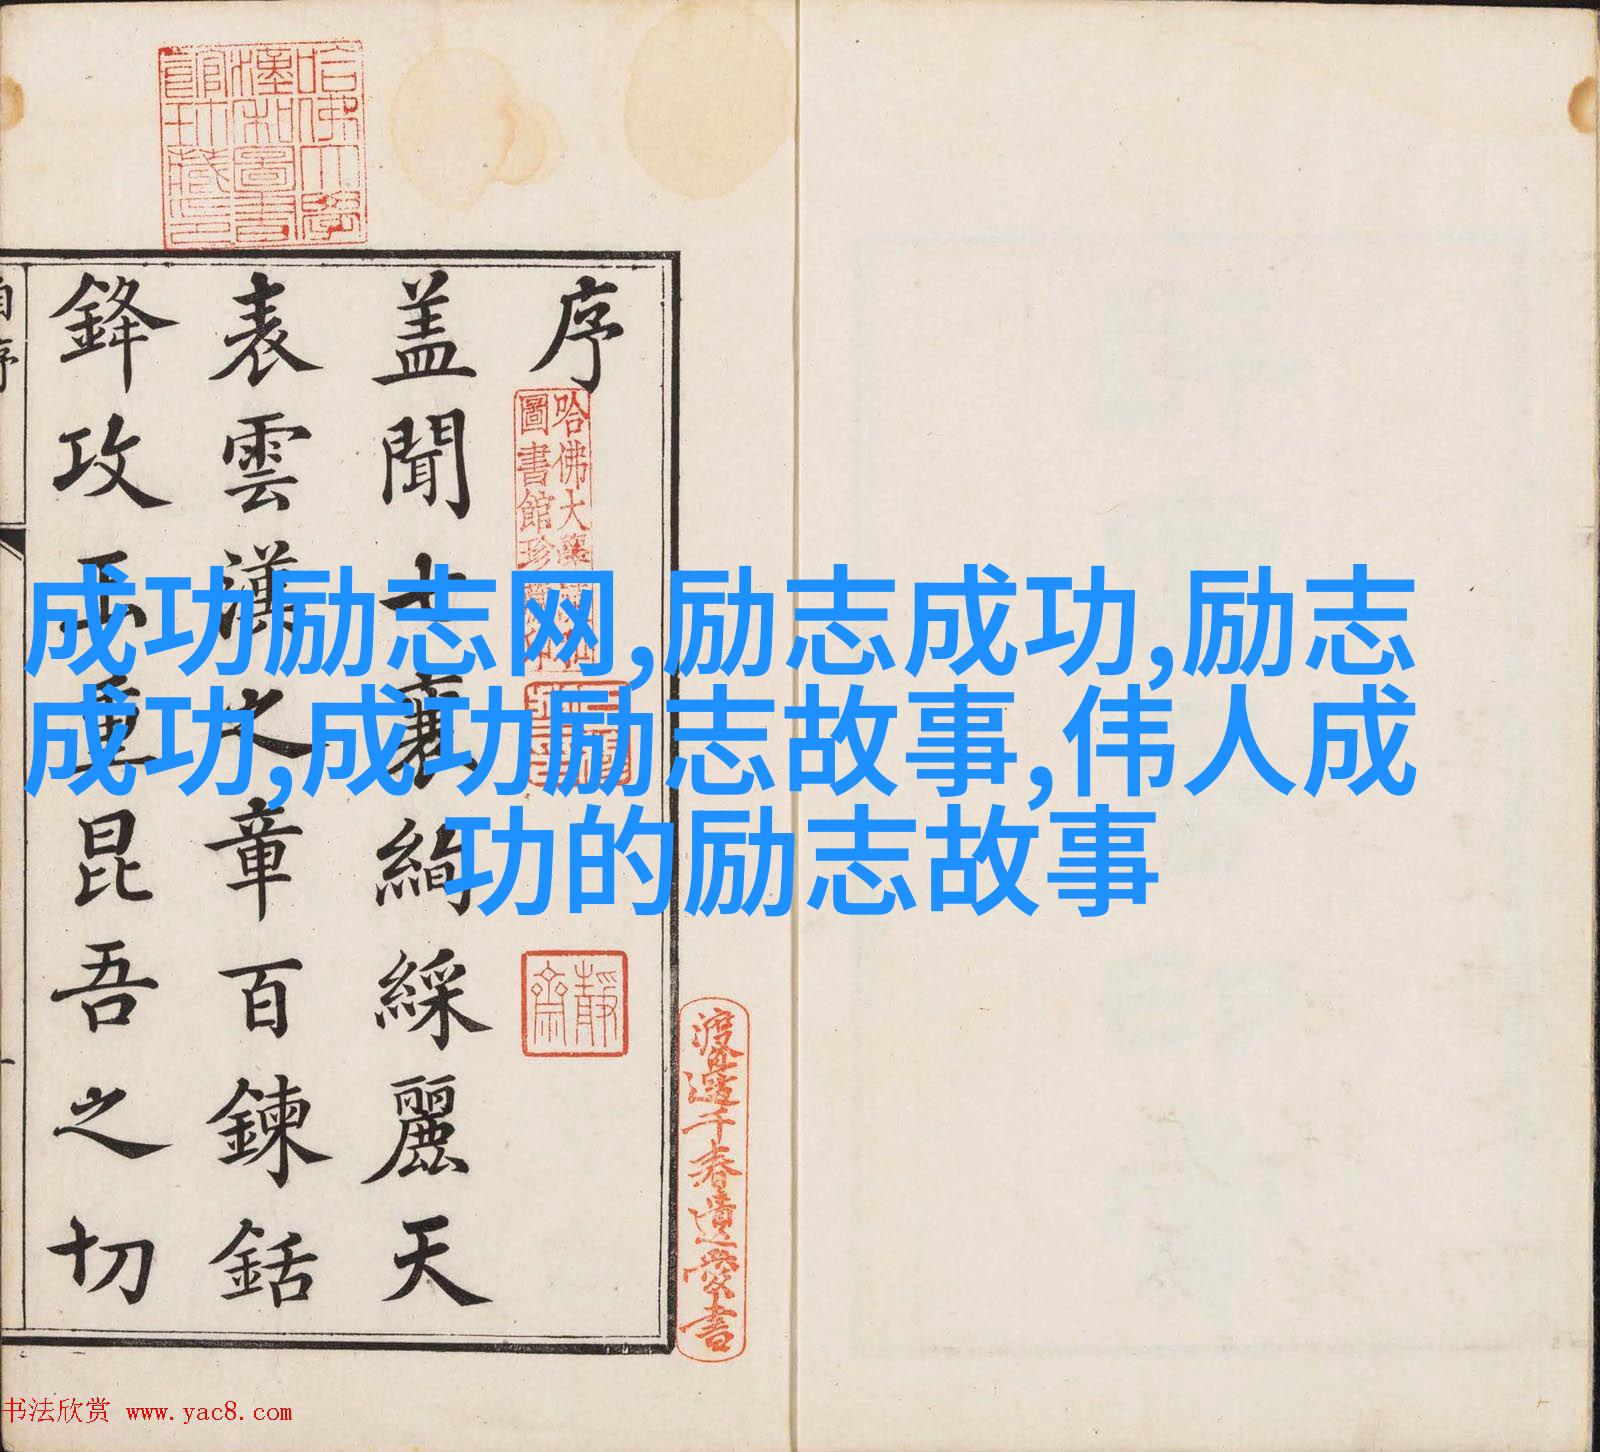 哈佛大學
漢和圖書
館珍藏印
序
盖聞七襄絢綵麗天
表雲漢之章百鍊銛
鋒攻玉重昆吾之切
自序
哈佛大學
圖書館珍
靜齋
渡邊千春遺愛書
成功励志网,励志成功,励志
成功,成功励志故事,伟人成
功的励志故事
书法欣赏 www.yac8.com